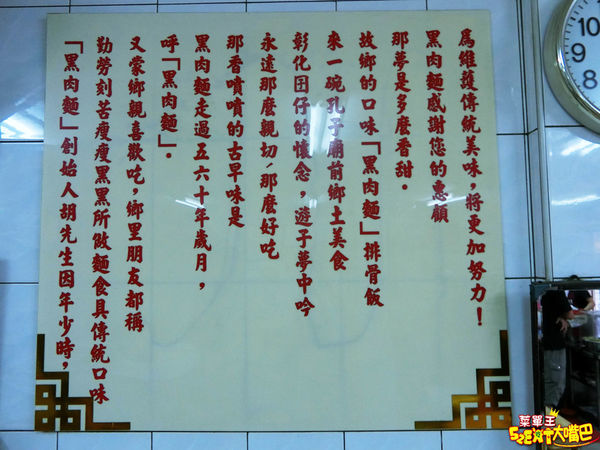 「黑肉麵」創始人胡先生因年少時,
勤勞刻苦瘦瘦黑黑所做麵食具傳統口味
又蒙鄉親喜歡吃,鄉里朋友都稱
呼「黑肉麵」。
黑肉麵走過五六十年歲月,
那香噴噴的古早味是
永遠那麼親切、那麼好吃
彰化囝仔的懷念,遊子夢中吟
來一碗孔子廟前鄉土美食
故鄉的口味「黑肉麵」排骨飯
那夢是多麼香甜。
黑肉麵感謝您的惠顧
為維護傳統美味,將更加努力!
10
9
8
7
菜單王
大嘴巴